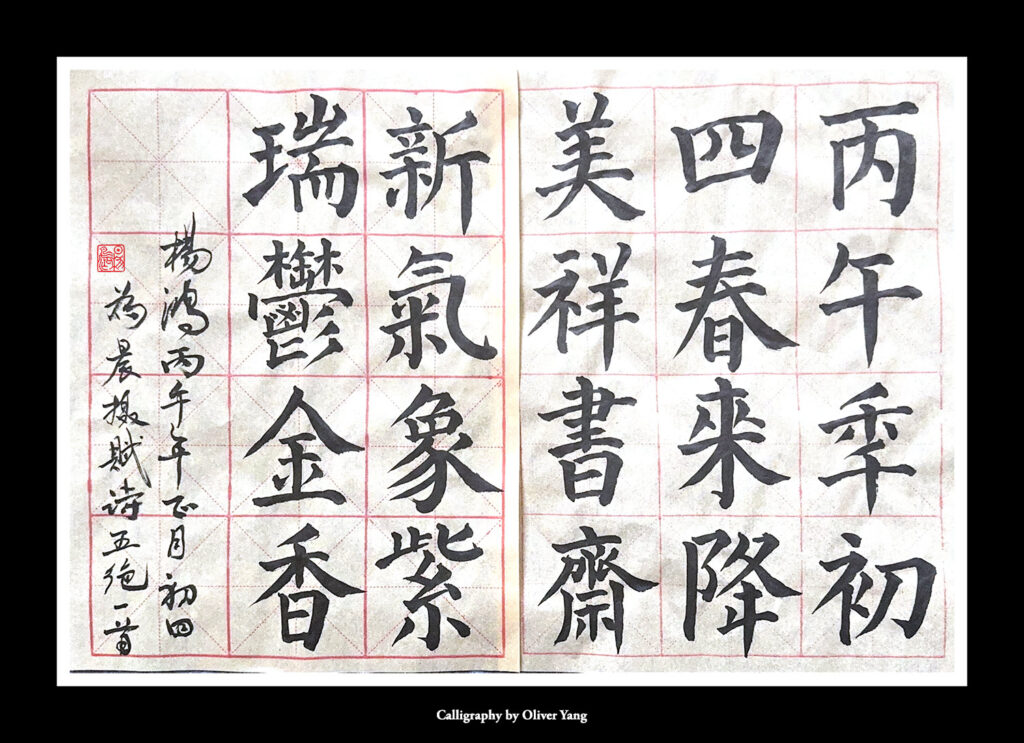 丙午秊初
四春來降
美祥書齋
新氣象紫
瑞鬱金香
楊鴻丙午年正月初四
為晨摄賦诗五绝一首
Calligraphy by Oliver Yang